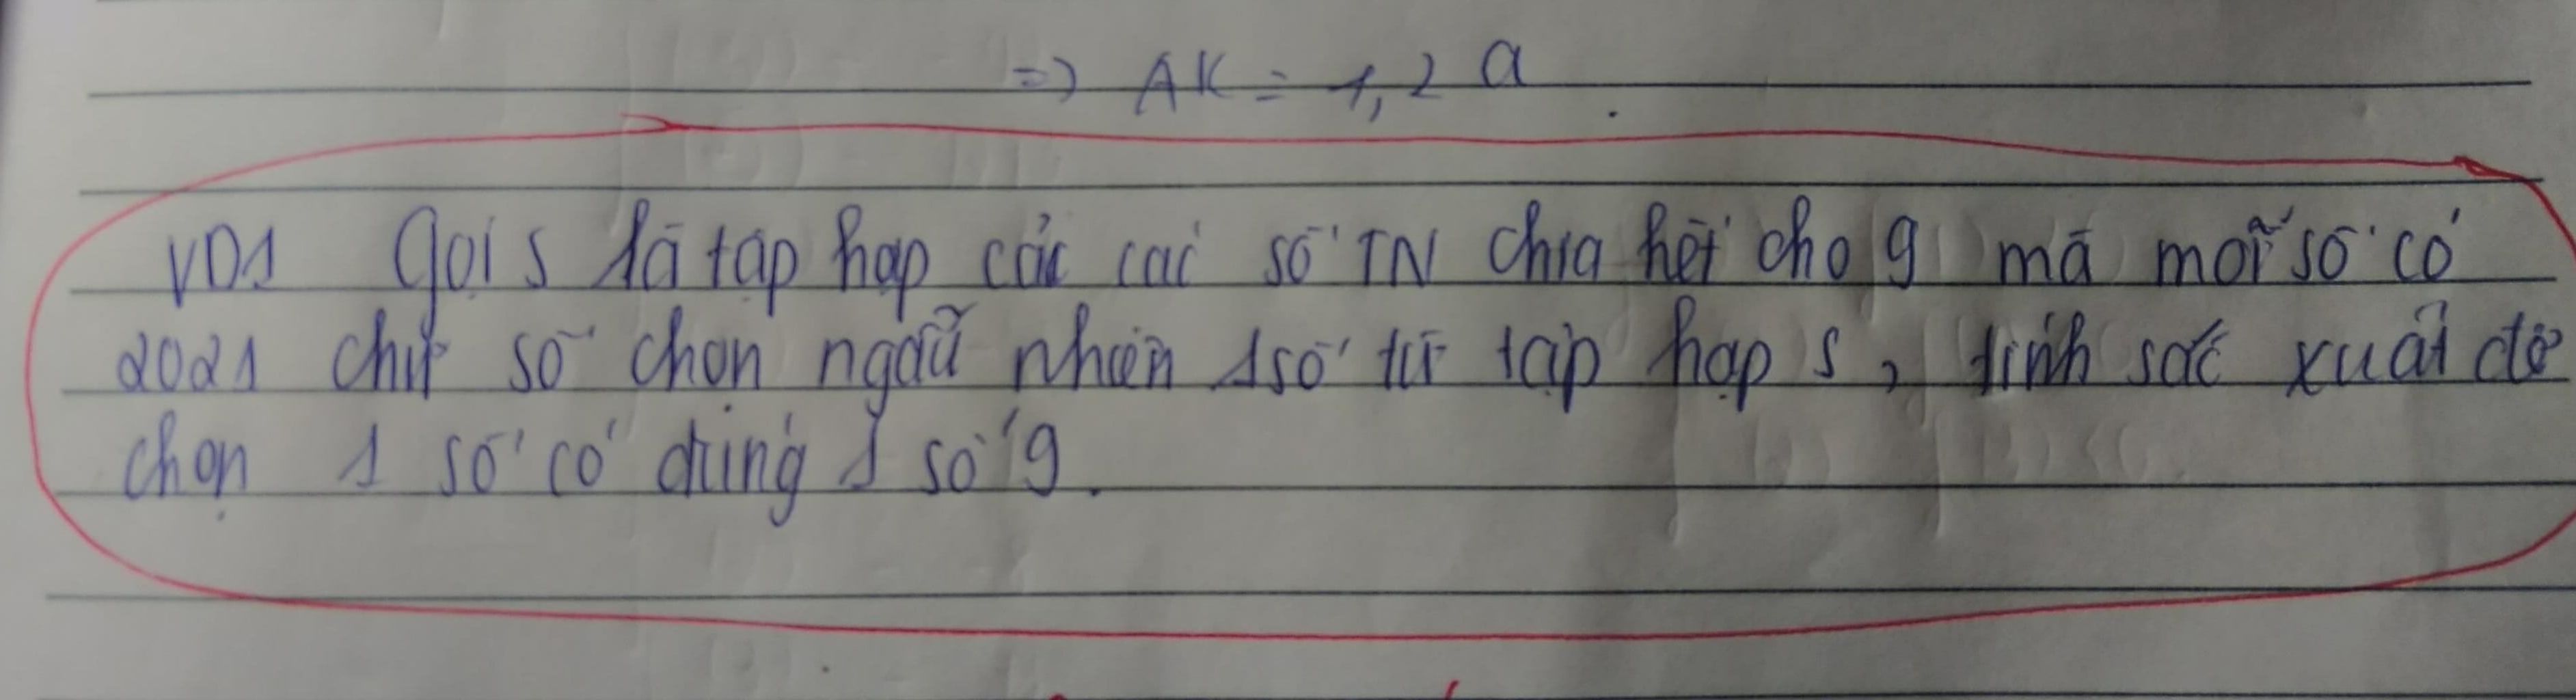 => AK = 1,2 a
VD1 Gọi S là tập hợp các các số TN chia hết cho 9 mà mỗi số có
2021 chữ số chọn ngẫu nhiên 1 số từ tập hợp S, tính sác xuất để
chọn 1 số có đúng 1 số 9.